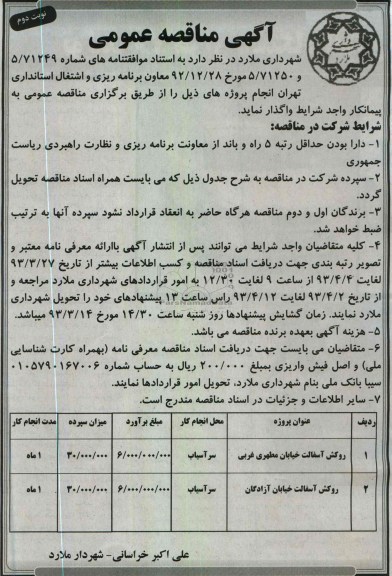 نوبت دوم
آگهی مناقصه عمومی
شهرداری ملارد در نظر دارد به استناد موافقتنامه های شماره ۵/۷۱۲۴۹
و ۵/۷۱۲۵۰ مورخ ۹۲/۱۲/۲۸ معاون برنامه ریزی و اشتغال استانداری
تهران انجام پروژه های ذیل را از طریق برگزاری مناقصه عمومی به
پیمانکار واجد شرایط واگذار نماید.
شرایط شرکت در مناقصه:
۱- دارا بودن حداقل رتبه ۵ راه و باند از معاونت برنامه ریزی و نظارت راهبردی ریاست
جمهوری
۲- سپرده شرکت در مناقصه به شرح جدول ذیل که می بایست همراه اسناد مناقصه تحویل
گردد.
۳- برندگان اول و دوم مناقصه هرگاه حاضر به انعقاد قرارداد نشود سپرده آنها به ترتیب
ضبط خواهد شد.
۴- کلیه متقاضیان واجد شرایط می توانند پس از انتشار آگهی باارائه معرفی نامه معتبر و
تصویر رتبه بندی جهت دریافت اسناد مناقصه و کسب اطلاعات بیشتر از تاریخ ۹۳/۳/۲۷
لغایت ۹۳/۴/۴ از ساعت ۹ لغایت ۱۲/۳۰ به امور قراردادهای شهرداری ملارد مراجعه و
از تاریخ ۹۳/۴/۲ لغایت ۹۳/۴/۱۲ راس ساعت ۱۳ پیشنهادهای خود را تحویل شهرداری
ملارد نمایند. زمان گشایش پیشنهادها روز شنبه ساعت ۱۴/۳۰ مورخ ۹۳/۳/۱۴ میباشد.
۵- هزینه آگهی بعهده برنده مناقصه می باشد.
۶- متقاضیان می بایست جهت دریافت اسناد مناقصه معرفی نامه (بهمراه کارت شناسایی
ملی) و اصل فیش واریزی بمبلغ ۲۰۰/۰۰۰ ریال به حساب شماره ۰۱۰۵۷۹۰۱۶۷۰۰۶
سیبا بانک ملی بنام شهرداری ملارد، تحویل امور قراردادها نمایند.
۷- سایر اطلاعات و جزئیات در اسناد مناقصه مندرج است.
ردیف عنوان پروژه محل انجام کار مبلغ برآورد میزان سپرده مدت انجام کار
۱ روکش آسفالت خیابان مطهری غربی سرآسیاب ۶/۰۰۰/۰۰۰/۰۰۰ ۳۰/۰۰۰/۰۰۰ ۱ ماه
۲ روکش آسفالت خیابان آزادگان سرآسیاب ۶/۰۰۰/۰۰۰/۰۰۰ ۳۰/۰۰۰/۰۰۰ ۱ ماه
علی اکبر خراسانی- شهردار ملارد